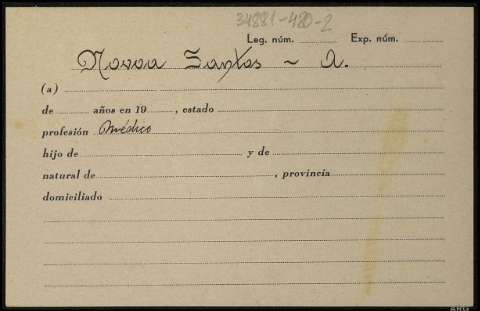 34881-480-2
Leg. núm. Exp. núm.
Novoa Santos - A.
(a)
de años en 19 , estado
profesión Médico
hijo de y de
natural de , provincia
domiciliado